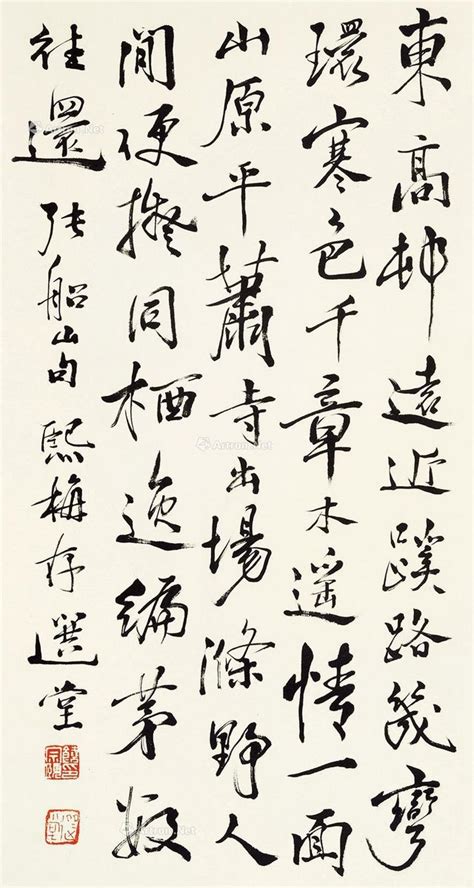 東高邨遠近蹊路幾彎
環寒色千章木遥情一面
山原平蕭寺出場滌野人
閒便擬同栖逸編茅數
往還 張船山句 熙梅存 選堂
Artron.Net